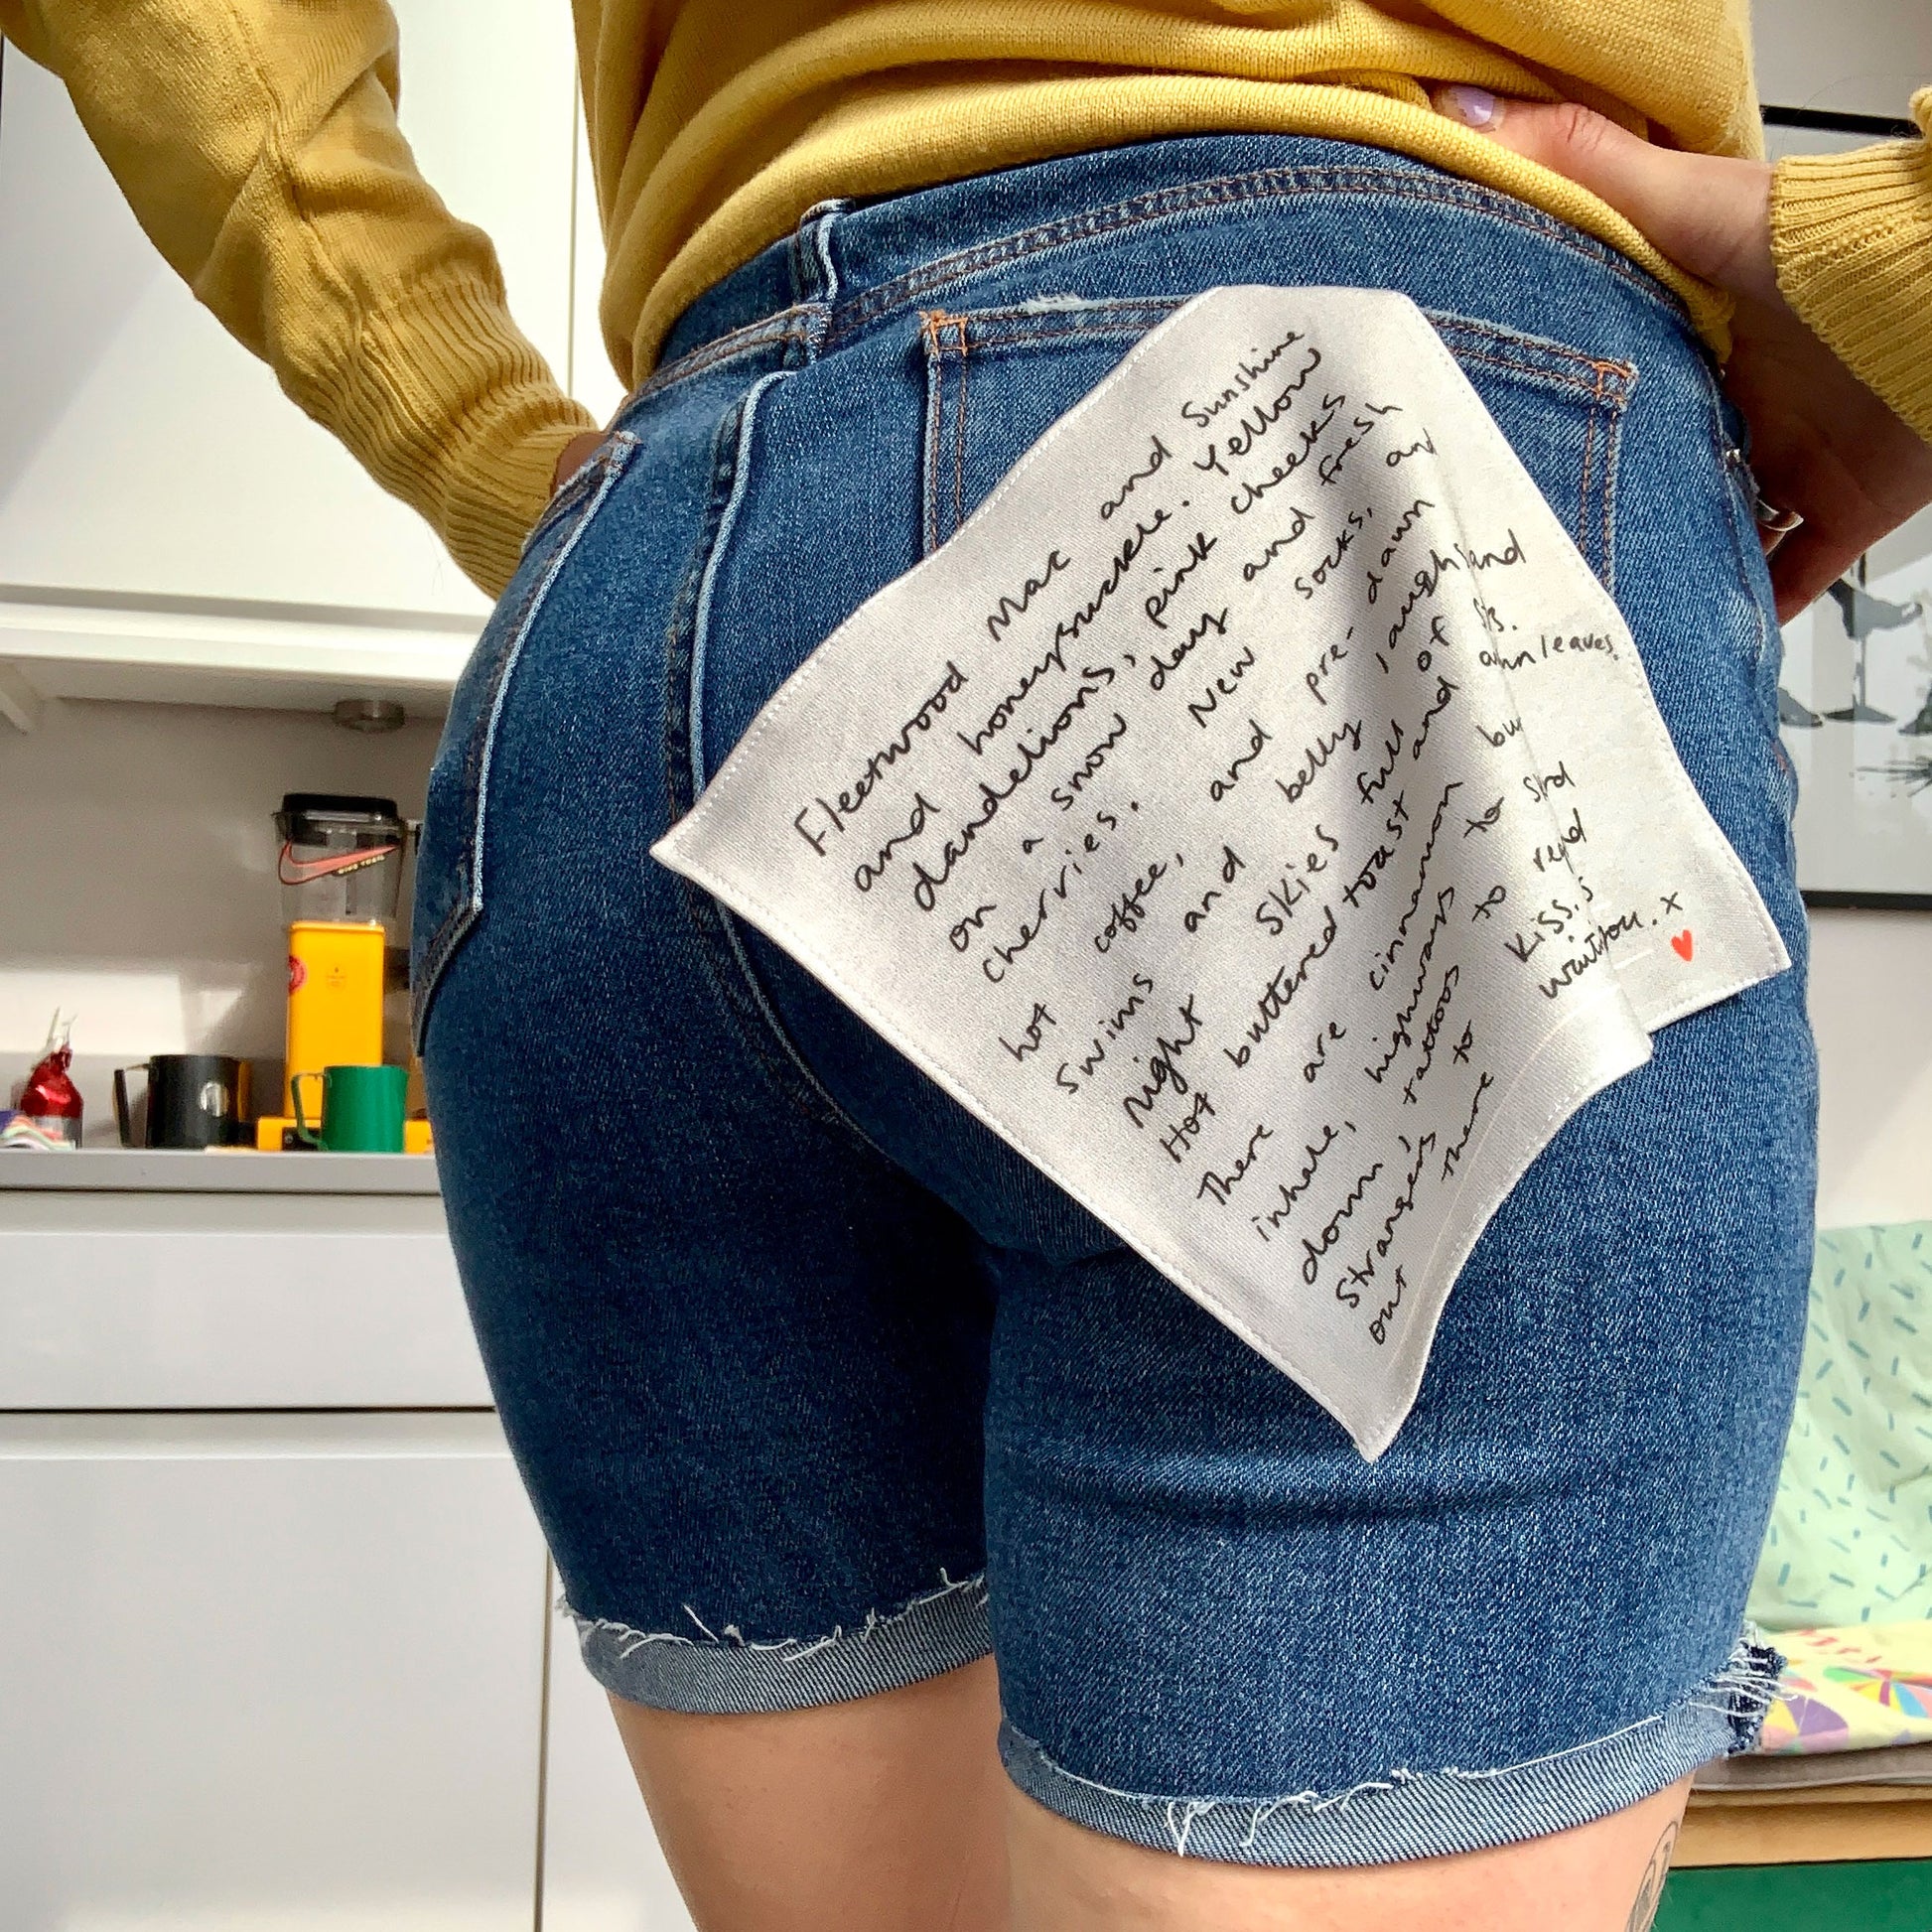 Fleetwood Mac and Sunshine
and honeysuckle. Yellow
dandelions, pink cheeks
on a snow day and fresh
cherries. New socks, and
hot coffee, and pre-dawn
swims and belly laugh and
night skies full of
Hot buttered toast and leaves.
There are cinnamon
inhale, highways to
down, tattoos to
strangers to
out there
x